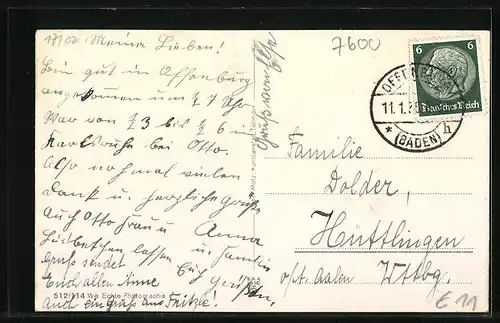 Meine Lieben!
Bin gut in Offenburg
angekommen um ½ 7 Uhr
War von ½ 3 bis ½ 6 in
Karlsruhe bei Otto.
Also nochmal vielen
Dank u. herzliche Grüße
Auch Otto Frau u. Anna
lassen u. Familie
Gruß sendet Euch grüßen,
Euch allen Anne
auch ein Gruß an Fritzle!
512/114 We Echte Photographie
7600
6 6
Deutsches Reich
OFFENBURG
11.1.
* (BADEN) h
Familie
Dolder,
Hüttlingen
o/t. Aalen Wttbg.
€ 11